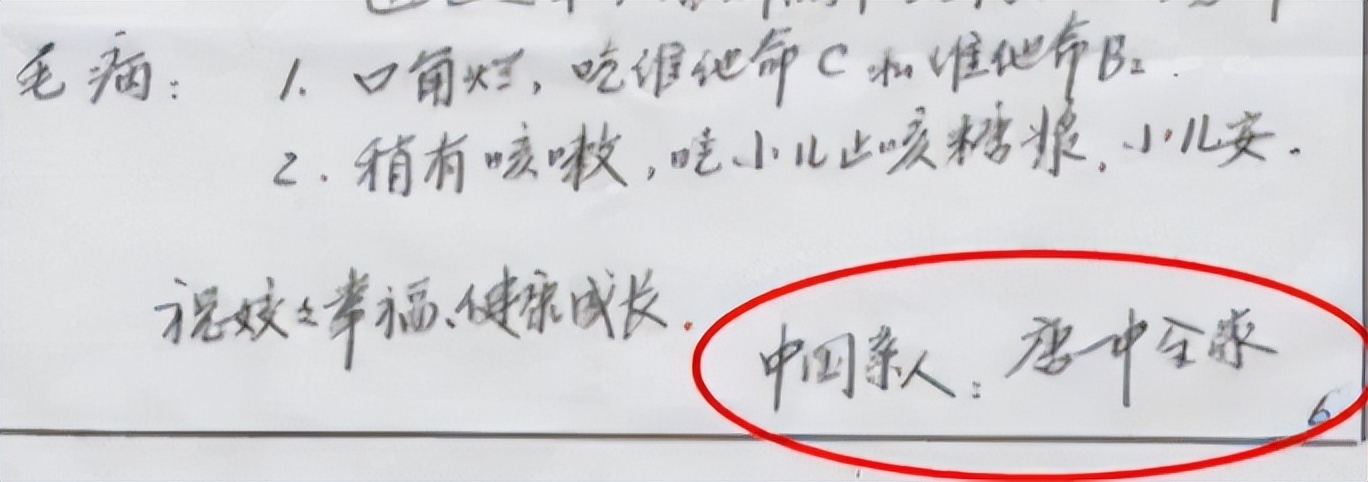 毛病: 1. 口角烂,吃维他命C和维他命B2.
2. 稍有咳嗽,吃小儿止咳糖浆.小儿安.
祝姣々幸福、健康成长.
中国亲人: 唐中全家
6